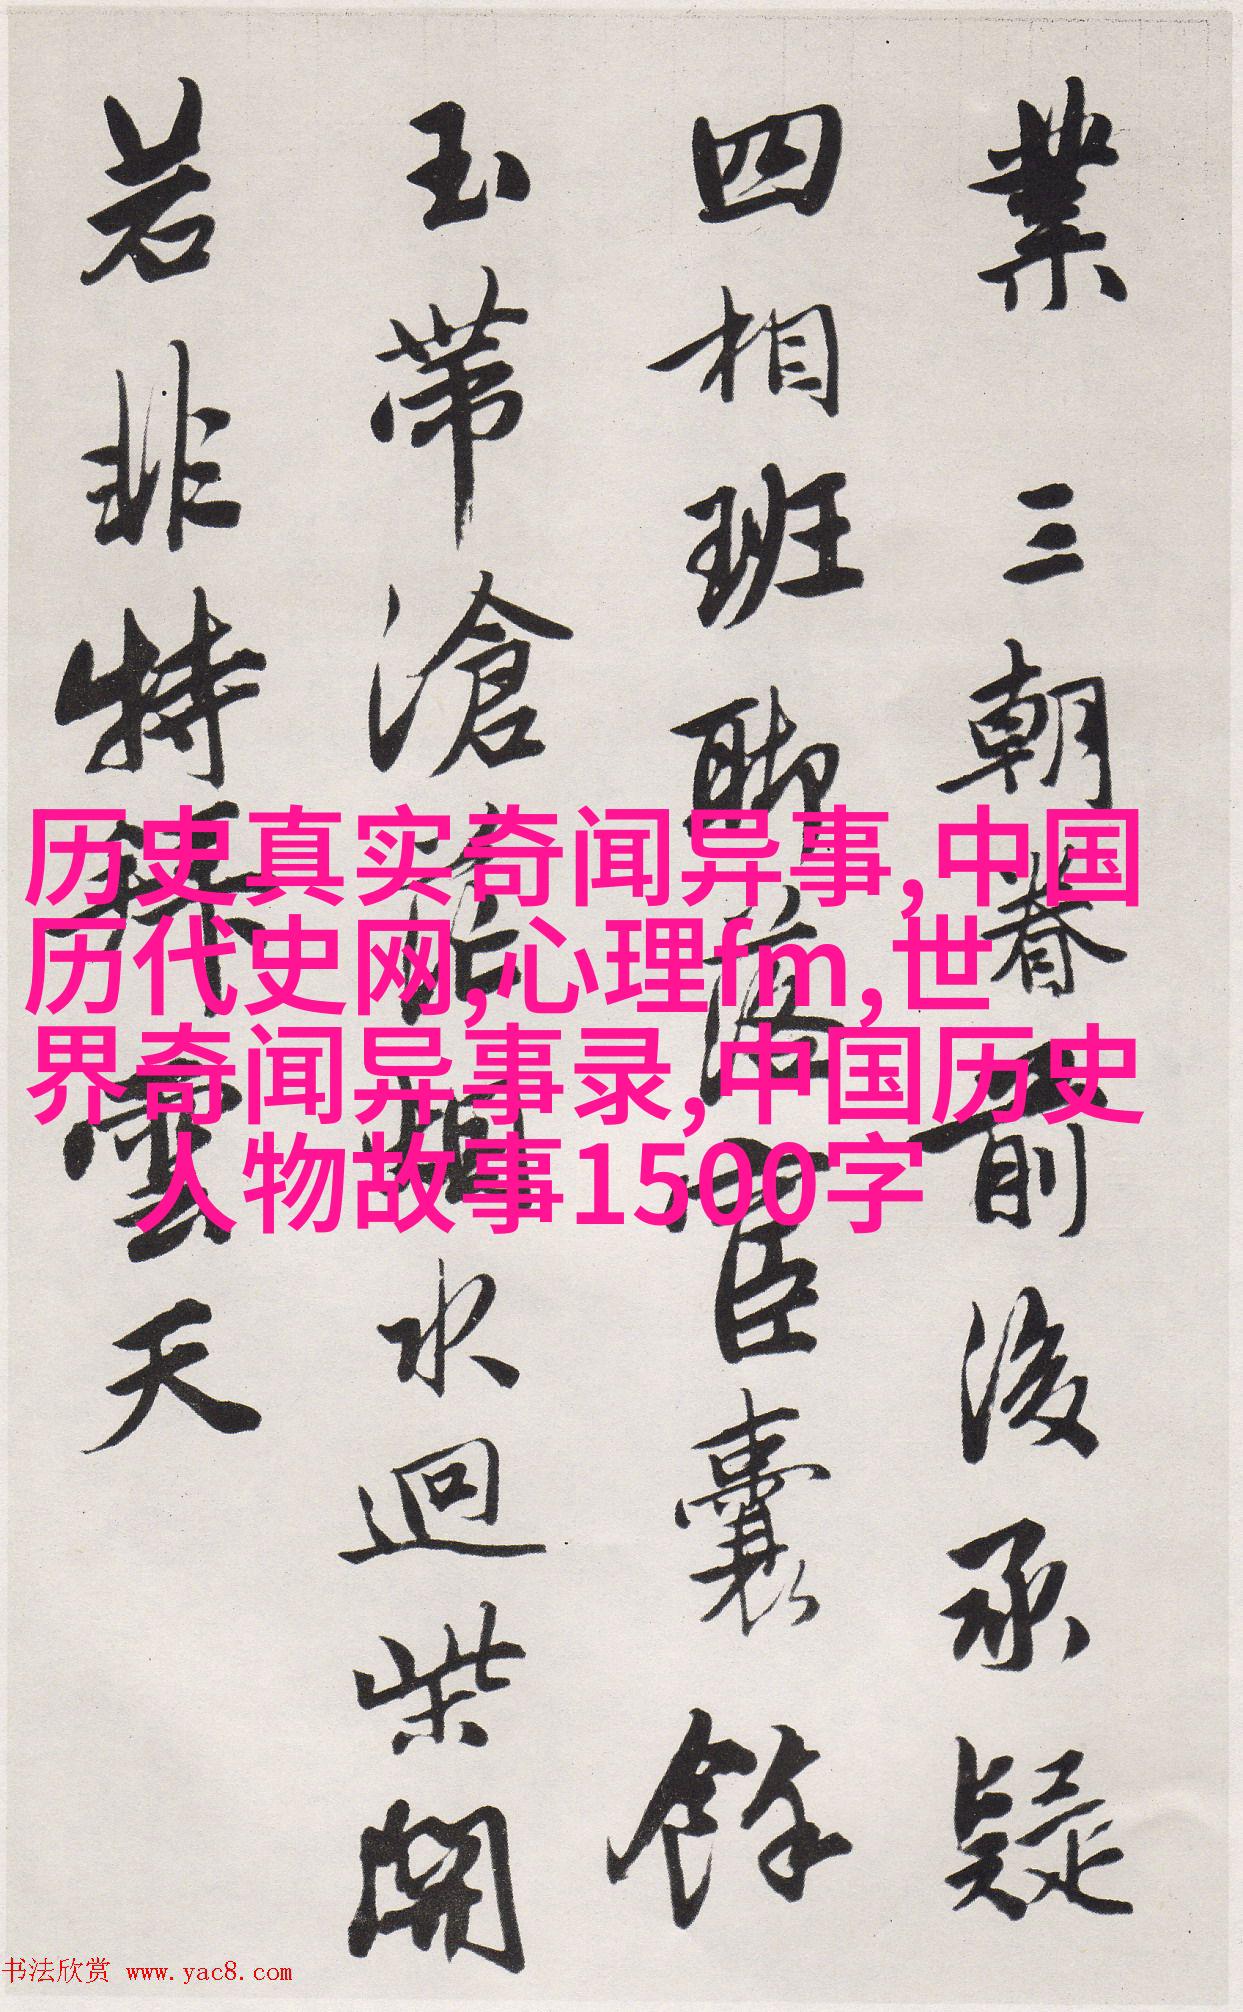 業 三朝眷前後承疑
四相班聊落宦囊餘
玉帶滄烟水迥柴開
若非特雲天
历史真实奇闻异事,中国
历代史网,心理fm,世
界奇闻异事录,中国历史
人物故事1500字
书法欣赏 www.yac8.com